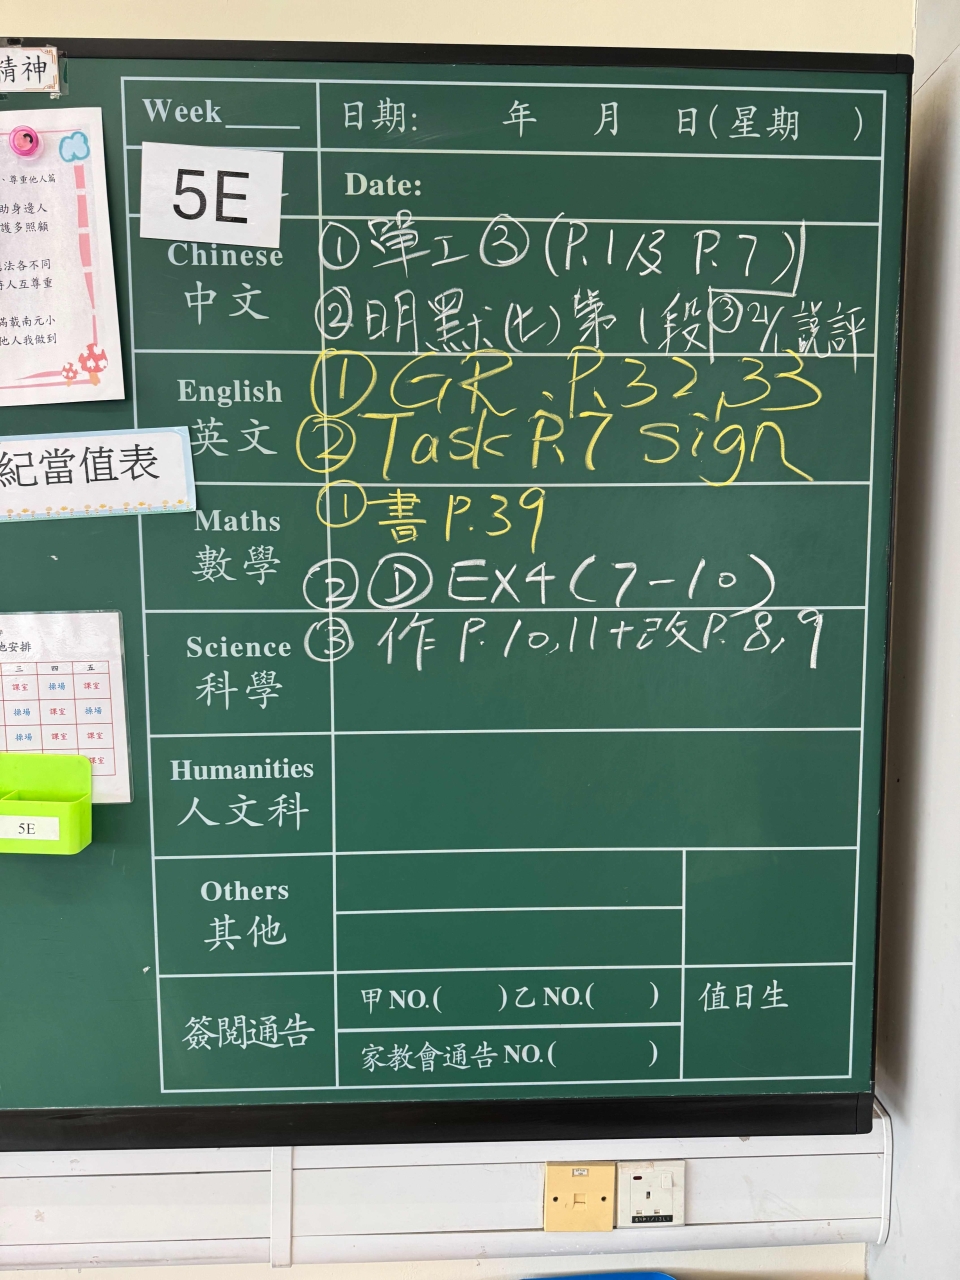 精神
、尊重他人篇
助身邊人
護多照顧
法各不同
人互尊重
滿載南元小
他人我做到
紀當值表
地安排
三 四 五
課室 操場 課室
操場 課室 操場
操場 課室 課室
課室
5E
Week____ 日期: 年 月 日(星期 )
5E
Date:
Chinese
中文
①單工③(P.1及 P.7)
②明默(七)第1段 ③21/1説評
English
英文
①GR P.32,33
②Task P.7 sign
Maths
數學
①書P.39
②Ⓓ EX4(7-10)
Science
科學
③作P.10,11+改P.8,9
Humanities
人文科
Others
其他
簽閱通告
甲NO.( )乙NO.( )
家教會通告NO.( )
值日生